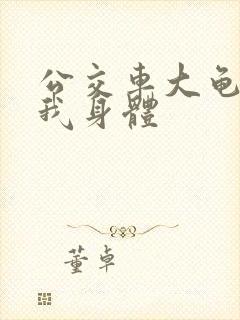 公交车大龟
我身体
董卓